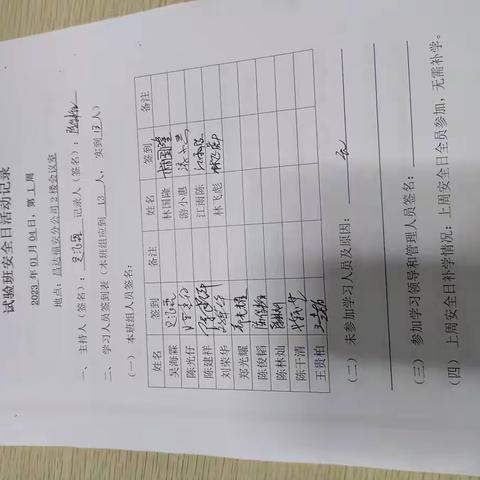 试验班安全日活动记录
2023 年 01 月 04 日，第 1 周
地点：昌达福安分公司2楼会议室
一、 主持人（签名）： 吴海霖 记录人（签名）：
二、 学习人员签到表（本班组应到 13 人， 实到 13 人）
（一） 本班组人员签名：
姓名 签到 备注 姓名 签到 备注
吴海霖 吴海霖 林国隆 林国隆
陈光仔 游小惠
陈建祥 江雨陈 江雨陈
刘荣华 林飞彪 林飞彪
郑光耀
陈俊韬
陈林灿
陈干清
王贵柏
（二） 未参加学习人员及原因： 无
（三） 参加学习领导和管理人员签名：
（四） 上周安全日补学情况：上周安全日全员参加，无需补学。